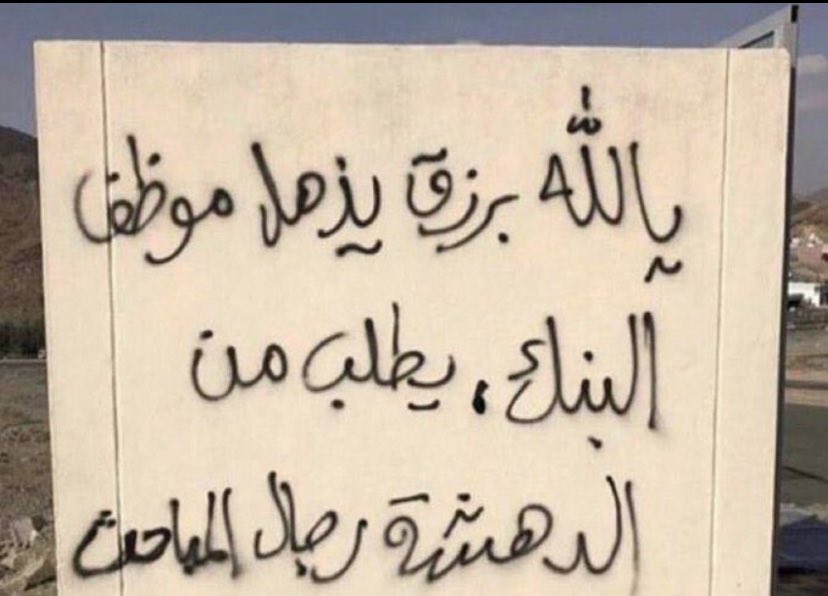 يالله برزق يذهل موظف
البنك، يطلب من
الدهشة رجال المباحث